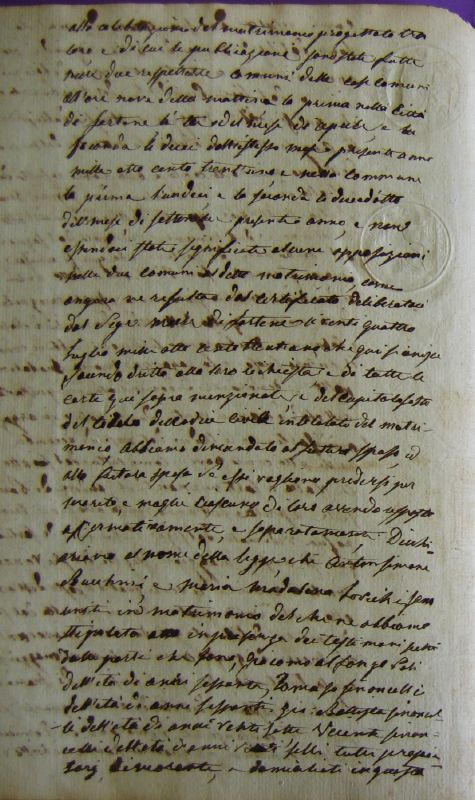 alla celebrazione del matrimonio progettato tra
loro e di cui le publicazioni sono state fatte
nelle due rispettive comuni delle case comuni
all'ore nove della mattina la prima nella Città
di Sartene li tre del mese di aprile e la
seconda li dieci dell'istesso mese presente anno
mille otto cento trent'uno e nella commune
la prima l'undeci e la seconda li dieciotto
del mese di settembre presente anno, e non
essendoci state significate alcune opposizioni
nelle due comuni al detto matrimonio, come
ancora ne resulta dal certificato
dal Sigr. maire di Sartene li venti quattro
luglio mille otto cento trentuno che qui si
Facendo dritto alla loro richiesta e di tutte le
carte qui sopra menzionate e del capitolo sesto
del titolo del codice civile intitolato del matri-
monio abbiamo dimandato al futuro sposo, ed
alla futura sposa se essi vogliono prendersi per
marito e moglie ciascuno di loro avendo risposto
affermativamente, e separatamente Dichi-
ariamo al nome della legge che Anton Simone
e Maria Maddalena sono
uniti in matrimonio del che ne abbiamo
stipulato atto in presenza dei testimoni
dalle parti che sono, Giacomo Alfonzo
dell'età di anni sessanta, Tomaso Simoncelli
dell'età di anni sessanta, Gio Battista Simoncel-
li dell'età di anni venti sette Vecente Simon-
celli dell'età d'anni tutti
dimoranti, e domiciliati in questa